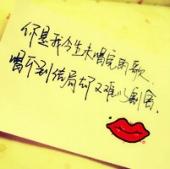 你是我今生未唱完的歌
唱不到结局却又难以割舍.